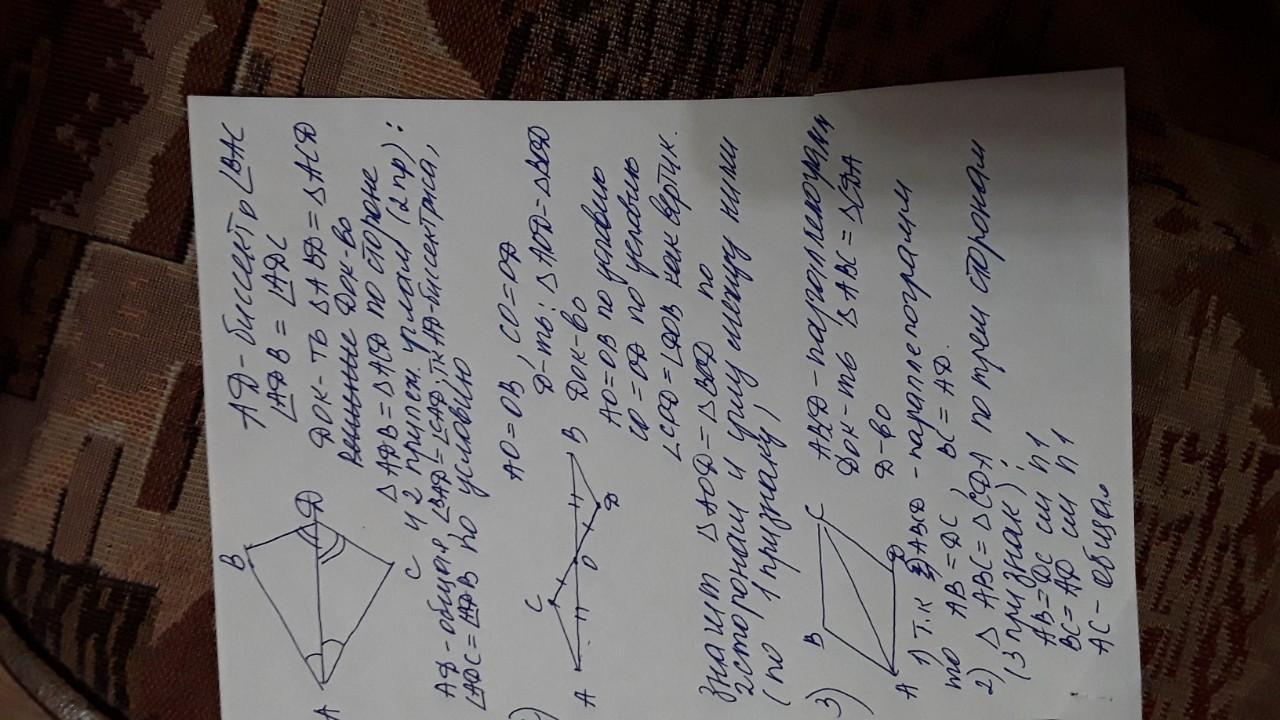 АД - биссектр ∠ВАС
∠АДВ = ∠АДС
Док-ть △АВД = △АСД
Док-во
△АДВ = △АСД по стороне
и 2 прилеж. углам (2 пр):
АД - общая, ∠ВАД = ∠САД, тк АД-биссектриса,
∠АДС = ∠АДВ по условию
А
В
Д
С
АО = ОВ, СО = ОД
Д-ть: △АОД = △ВОД
Док-во
АО = ОВ по условию
СО = ОД по условию
∠СОД = ∠АОВ как вертик.
А
С
О
В
Д
Значит △АОД = △ВОД по
2 сторонам и углу между ними
(по 1 признаку)
3)
АВСД - параллелограмм
Док-ть △АВС = △СДА
Д-во
В
С
А
Д
1) т.к АВСД - параллелограмм
то АВ = ДС, ВС = АД.
2) △АВС = △СДА по трем сторонам
(3 признак):
АВ = ДС см п1
ВС = АД см п1
АС - общая